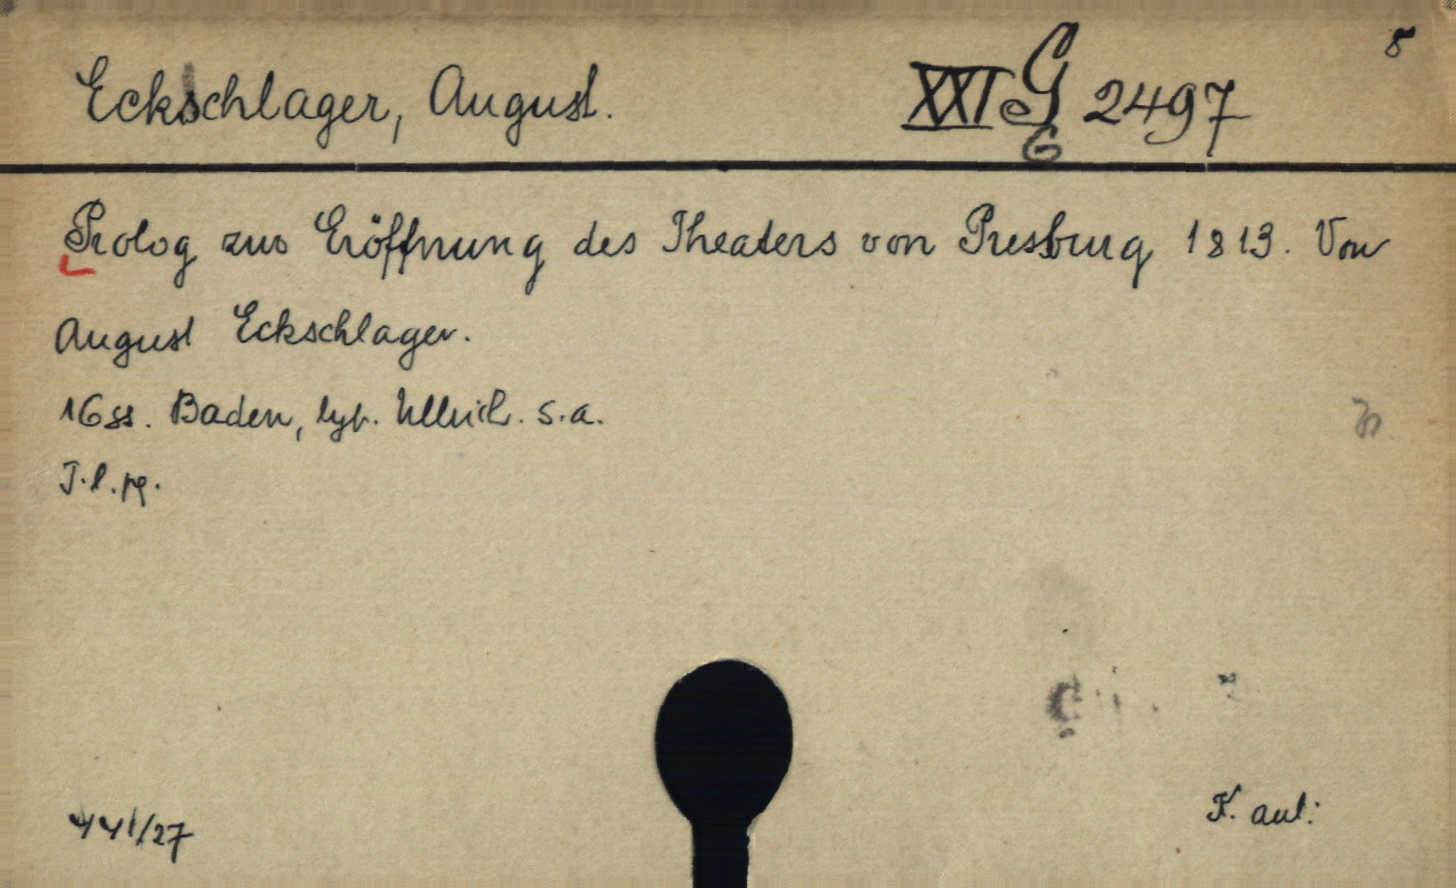 8
Eckschlager, August. XXI G 2497
G
Prolog zur Eröffnung des Theaters von Presburg 1813. Von
August Eckschlager.
16 ss. Baden, typ. Ullrich. s.a.
I.l.pg.
441/27
K. aut: